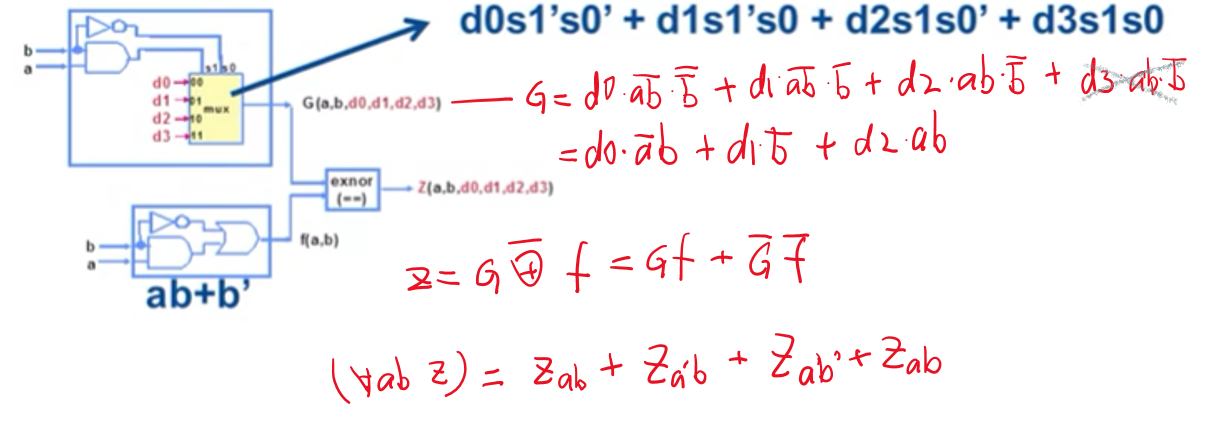 d0s1's0' + d1s1's0 + d2s1s0' + d3s1s0
b
a
s1 s0
d0 00
d1 01
d2 10
d3 11
mux
G(a,b,d0,d1,d2,d3)
G = d0·a̅b̅·b̿ + d1·a̅b̅·b̅ + d2·ab·b̿ + d3·ab·b̅
= d0·a̅b + d1b̅ + d2·ab
exnor
(==)
Z(a,b,d0,d1,d2,d3)
b
a
f(a,b)
ab+b'
z = G ⊕̅ f = Gf + G̅ f̅
(∀ab z) = Zab + Za'b + Zab' + Zab